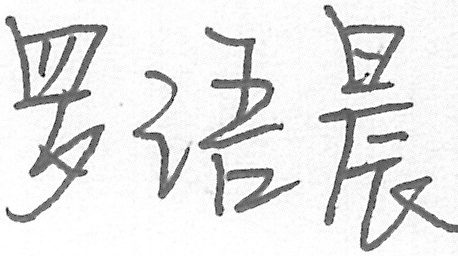 罗语晨